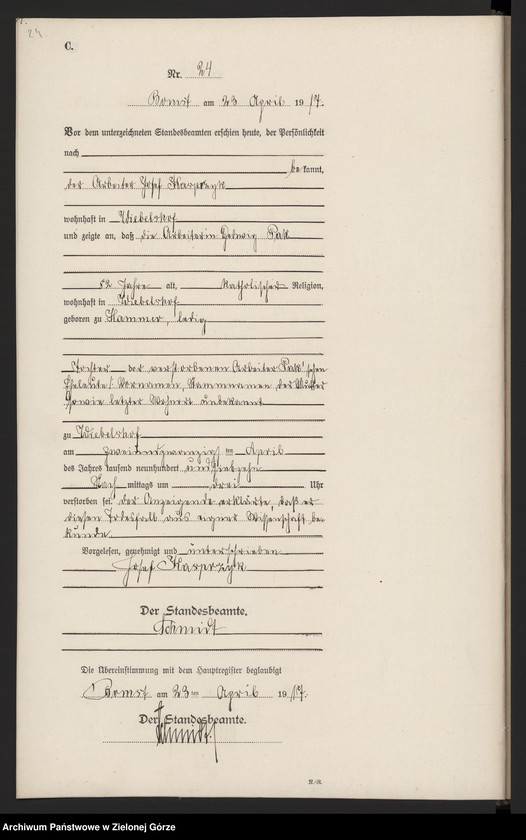 24
C.
Nr. 24
Bomst am 23 April 1917.
Vor dem unterzeichneten Standesbeamten erschien heute, der Persönlichkeit
nach
bekannt,
der Arbeiter Josef Kasprzyk
wohnhaft in Wiebelshof
und zeigte an, daß die Arbeiterin Hedwig Pak
52 Jahre alt, katholischer Religion,
wohnhaft in Wiebelshof
geboren zu Kammer, ledig
Tochter der verstorbenen Arbeiter Pak'schen
Eheleute, Vornamen, Stammnamen der Mutter
sowie letzter Wohnort unbekannt
zu Wiebelshof
am zweiundzwanzigsten April
des Jahres tausend neunhundert undsiebzehn
Nachmittags um drei Uhr
verstorben sei. Der Anzeigende erklärte, daß er
diesen Todesfall aus eigner Wissenschaft be-
kunde.
Vorgelesen, genehmigt und unterschrieben
Josef Kasprzyk
Der Standesbeamte.
Schmidt
Die Übereinstimmung mit dem Hauptregister beglaubigt
Bomst am 23ten April 1917.
Der Standesbeamte.
Schmidt
Archiwum Państwowe w Zielonej Górze